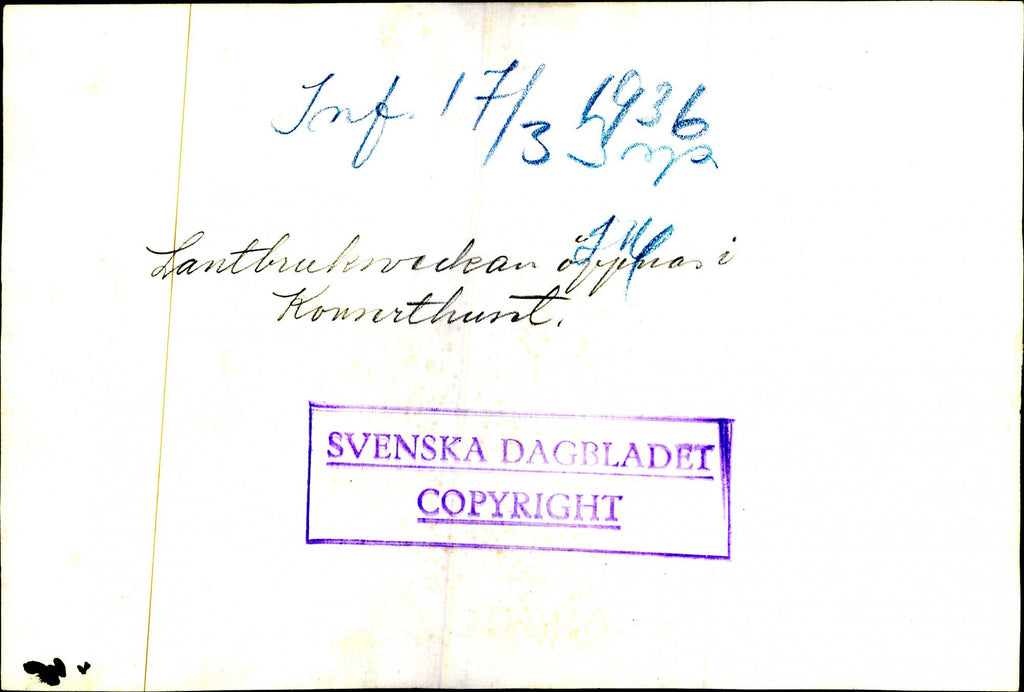 Inf. 17/3 1936
Lantbruksveckan öppnas i
Konserthuset.
SVENSKA DAGBLADET
COPYRIGHT